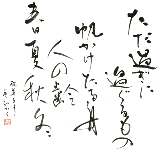 ただ過ぎに
過ぐるもの
帆かけたる舟
人の齢
春夏秋冬